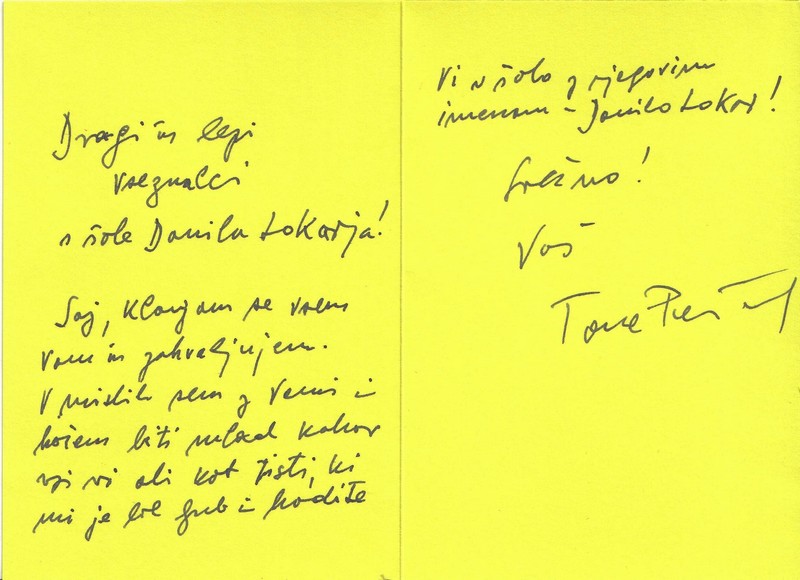 Dragi in lepi
vseznalci
s šole Danila Lokarja!
Saj, klanjam se vsem
vam in zahvaljujem.
V mislih sem z Vami in
hočem biti mlad kakor
vsi vi ali kot tisti, ki
mi je bil ljub in hodite
Vi v šolo z njegovim
imenom - Danilo Lokar!
Srečno!
Vaš
Tone